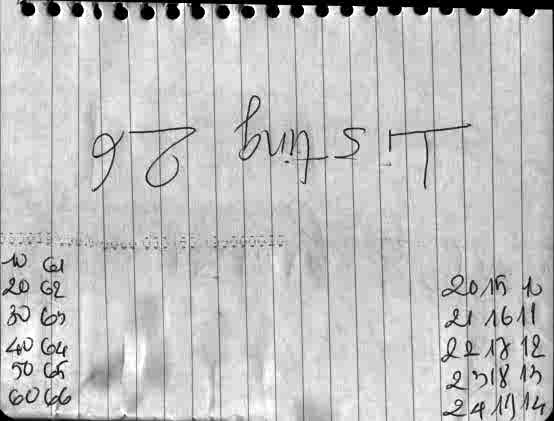 Listing 26
10 61
20 62
30 63
40 64
50 65
60 66
20 15 10
21 16 11
22 17 12
23 18 13
24 19 14